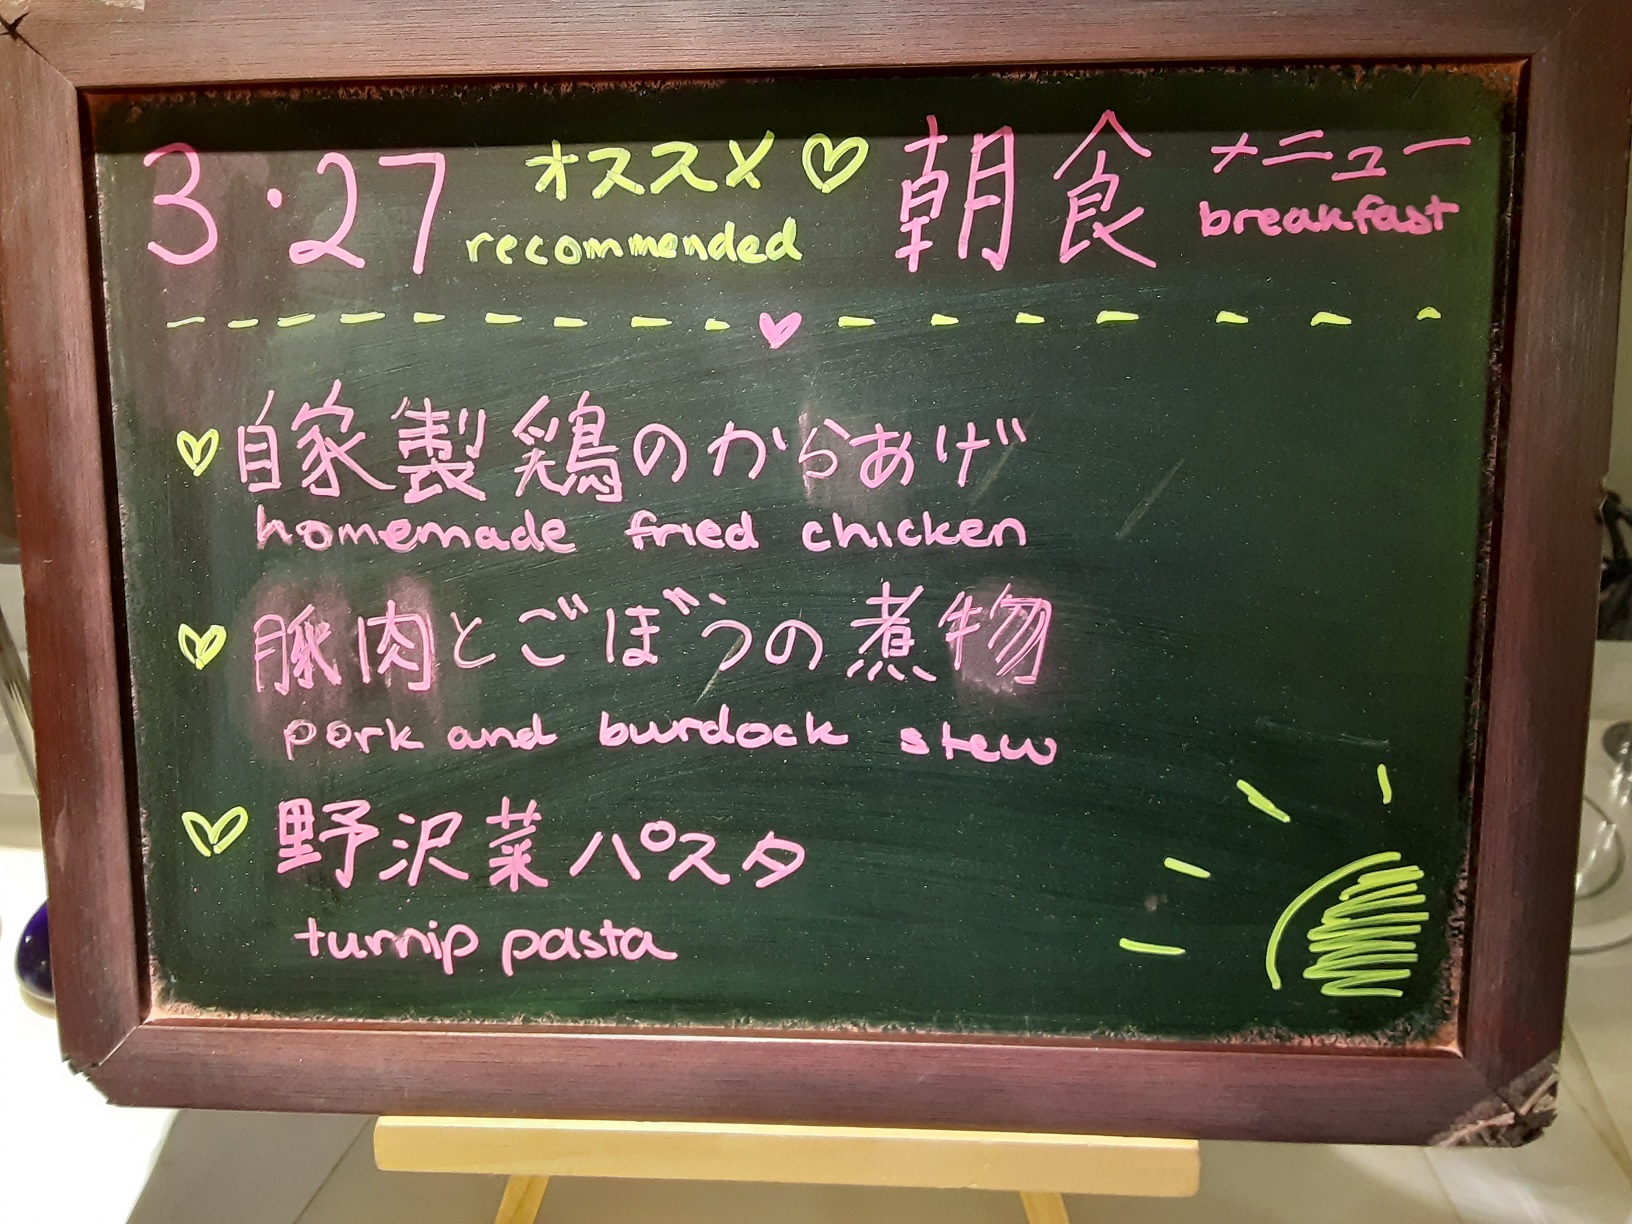 3・27 オススメ♡ 朝食 メニュー
recommended breakfast
♡自家製鶏のからあげ
homemade fried chicken
♡豚肉とごぼうの煮物
pork and burdock stew
♡野沢菜パスタ
turnip pasta